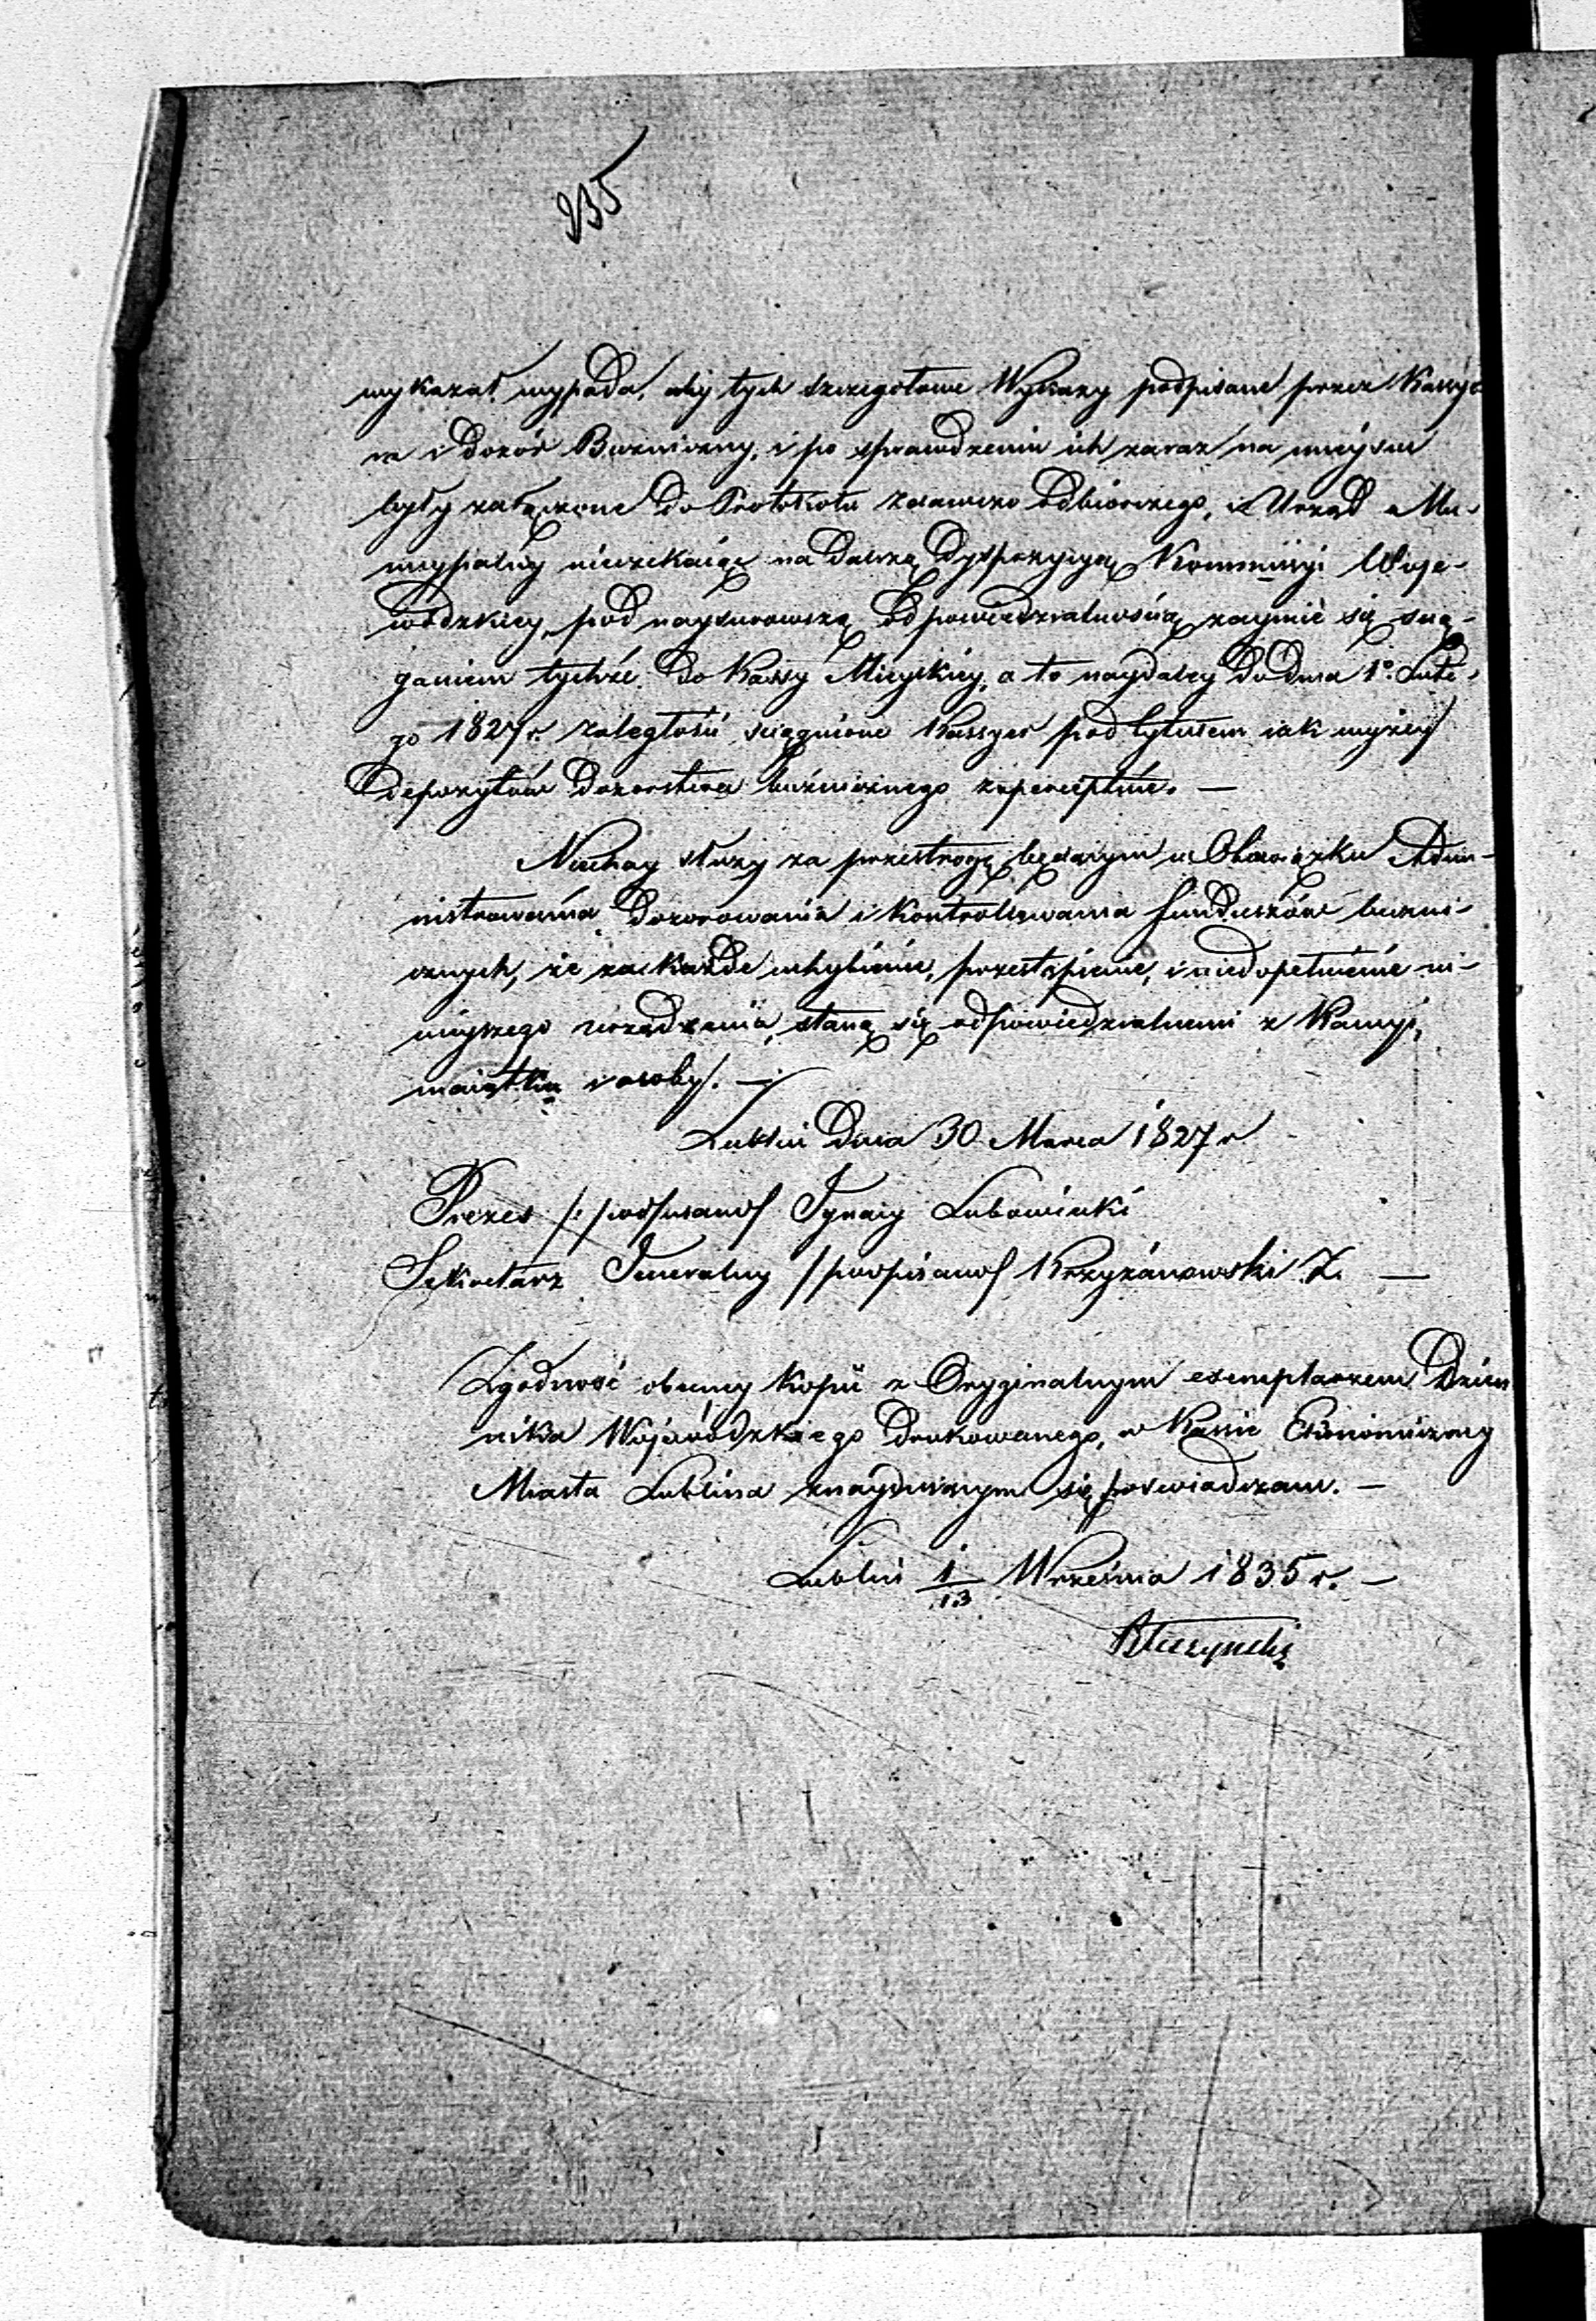 235
wykazać wypada, aby tych szczegołowe Wykazy podpisane przez Kassye
ra i Dozór Bużniczny, i po sprawdzeniu ich zaraz na mieyscu
były załączone do Protokołu Zdawczo Odbiorczego, i Urząd Mu-
nicypalny nieczekaiąc na dalszą Dyspozycyą Kommissyi Woje-
wódzkiey, pod naysurowszą Odpowiedzialnością zaymie się ścią-
ganiem tychże do Kassy Mieyskiey, a to naydaley do dnia 1o Lute-
go 1827 r. zaległości ściągnione Kassyer pod tytułem iak wyżey
depozytów Dozorstwa bużnicznego zaperceptuie. —
Niechay służy za przestrogę będącym w Obowiązku Admi-
nistrowania Dozorowania i Kontrolowania funduszów bużni-
cznych, że za każde uchybienie, przestąpienie, i niedopełnienie ni-
nieyszego urządzenia, staną się odpowiedzialnemi z Kaucyi,
maiątku i osoby. —
Lublin Dnia 30 Marca 1827 r
Prezes /: podpisano/ Ignacy Lubowiecki
Sekretarz Jeneralny /podpisano/ Krzyżanowski Z. —
Zgodność obecney Kopii z Oryginalnym exemplarzem Dzien
nika Wojewódzkiego Drukowanego, w Kassie Ekonomiczney
Miasta Lublina znayduiącym się poświadczam. —
Lublin 1/13 Września 1835 r. —